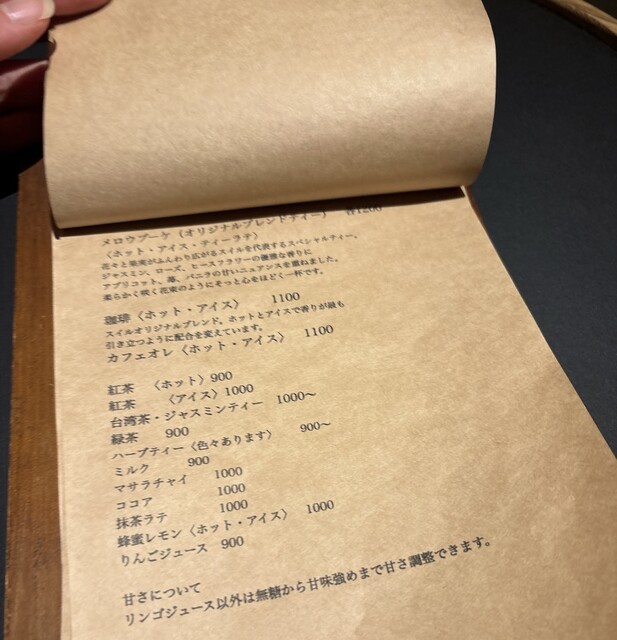 メロウブーケ (オリジナルブレンドティー) 各1200
〈ホット・アイス・ティーラテ〉
花々と果実がふんわり広がるスイルを代表するスペシャルティー。
ジャスミン、ローズ、ヒースフラワーの優雅な香りに
アプリコット、苺、バニラの甘いニュアンスを重ねました。
柔らかく咲く花束のようにそっと心をほどく一杯です。
珈琲〈ホット・アイス〉 1100
スイルオリジナルブレンド。ホットとアイスで香りが最も
引き立つように配合を変えています。
カフェオレ〈ホット・アイス〉 1100
紅茶 〈ホット〉900
紅茶 〈アイス〉1000
台湾茶・ジャスミンティー 1000〜
緑茶 900
ハーブティー〈色々あります〉 900〜
ミルク 900
マサラチャイ 1000
ココア 1000
抹茶ラテ 1000
蜂蜜レモン〈ホット・アイス〉 1000
りんごジュース 900
甘さについて
リンゴジュース以外は無糖から甘味強めまで甘さ調整できます。